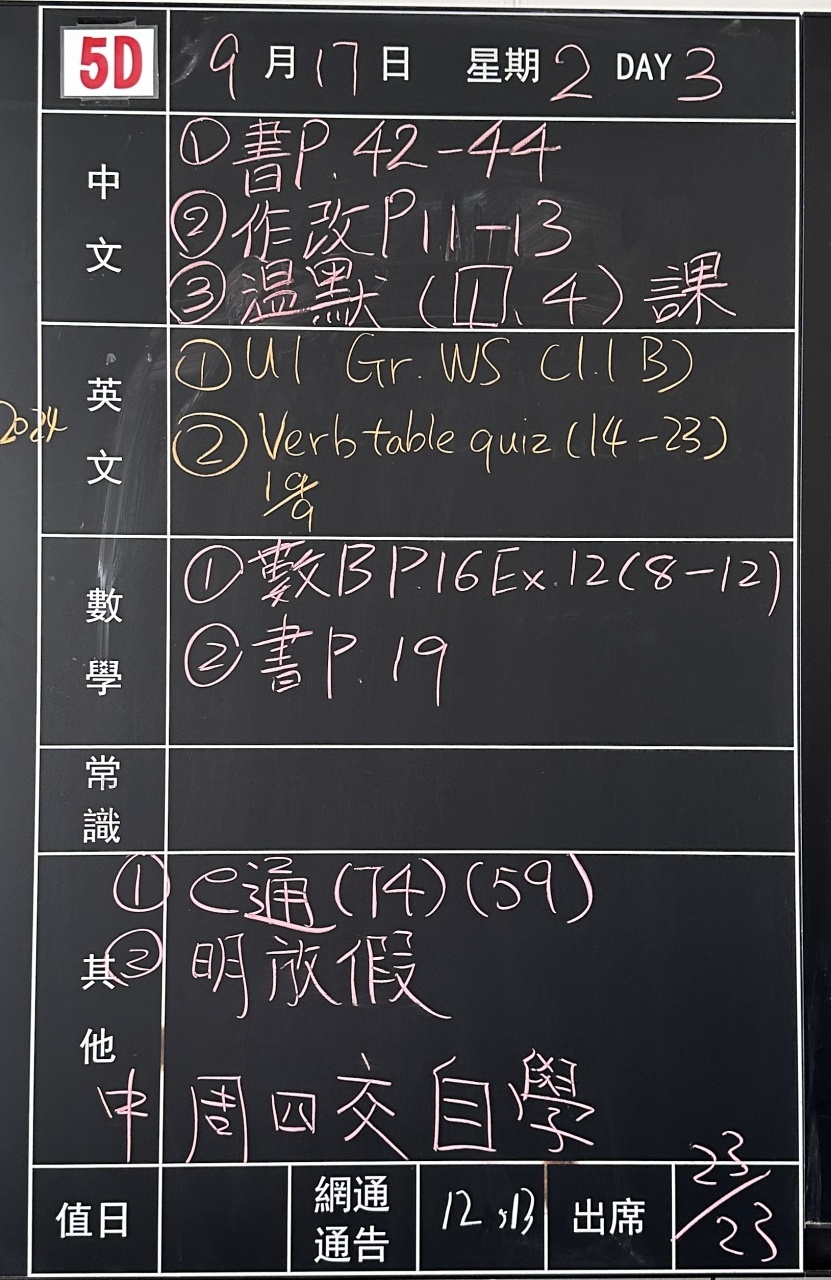 5D 9月17日 星期2 DAY 3
中文
①書P.42-44
②作改P11-13
③溫默(1、4)課
英文
2024
①U1 Gr. WS (1.1 B)
②Verb table quiz (14-23)
19/9
數學
①數B P.16 Ex.12(8-12)
②書P.19
常識
其他
①e通(74)(59)
②明放假
中 周四交自學
值日
網通通告 12,13
出席 23/23